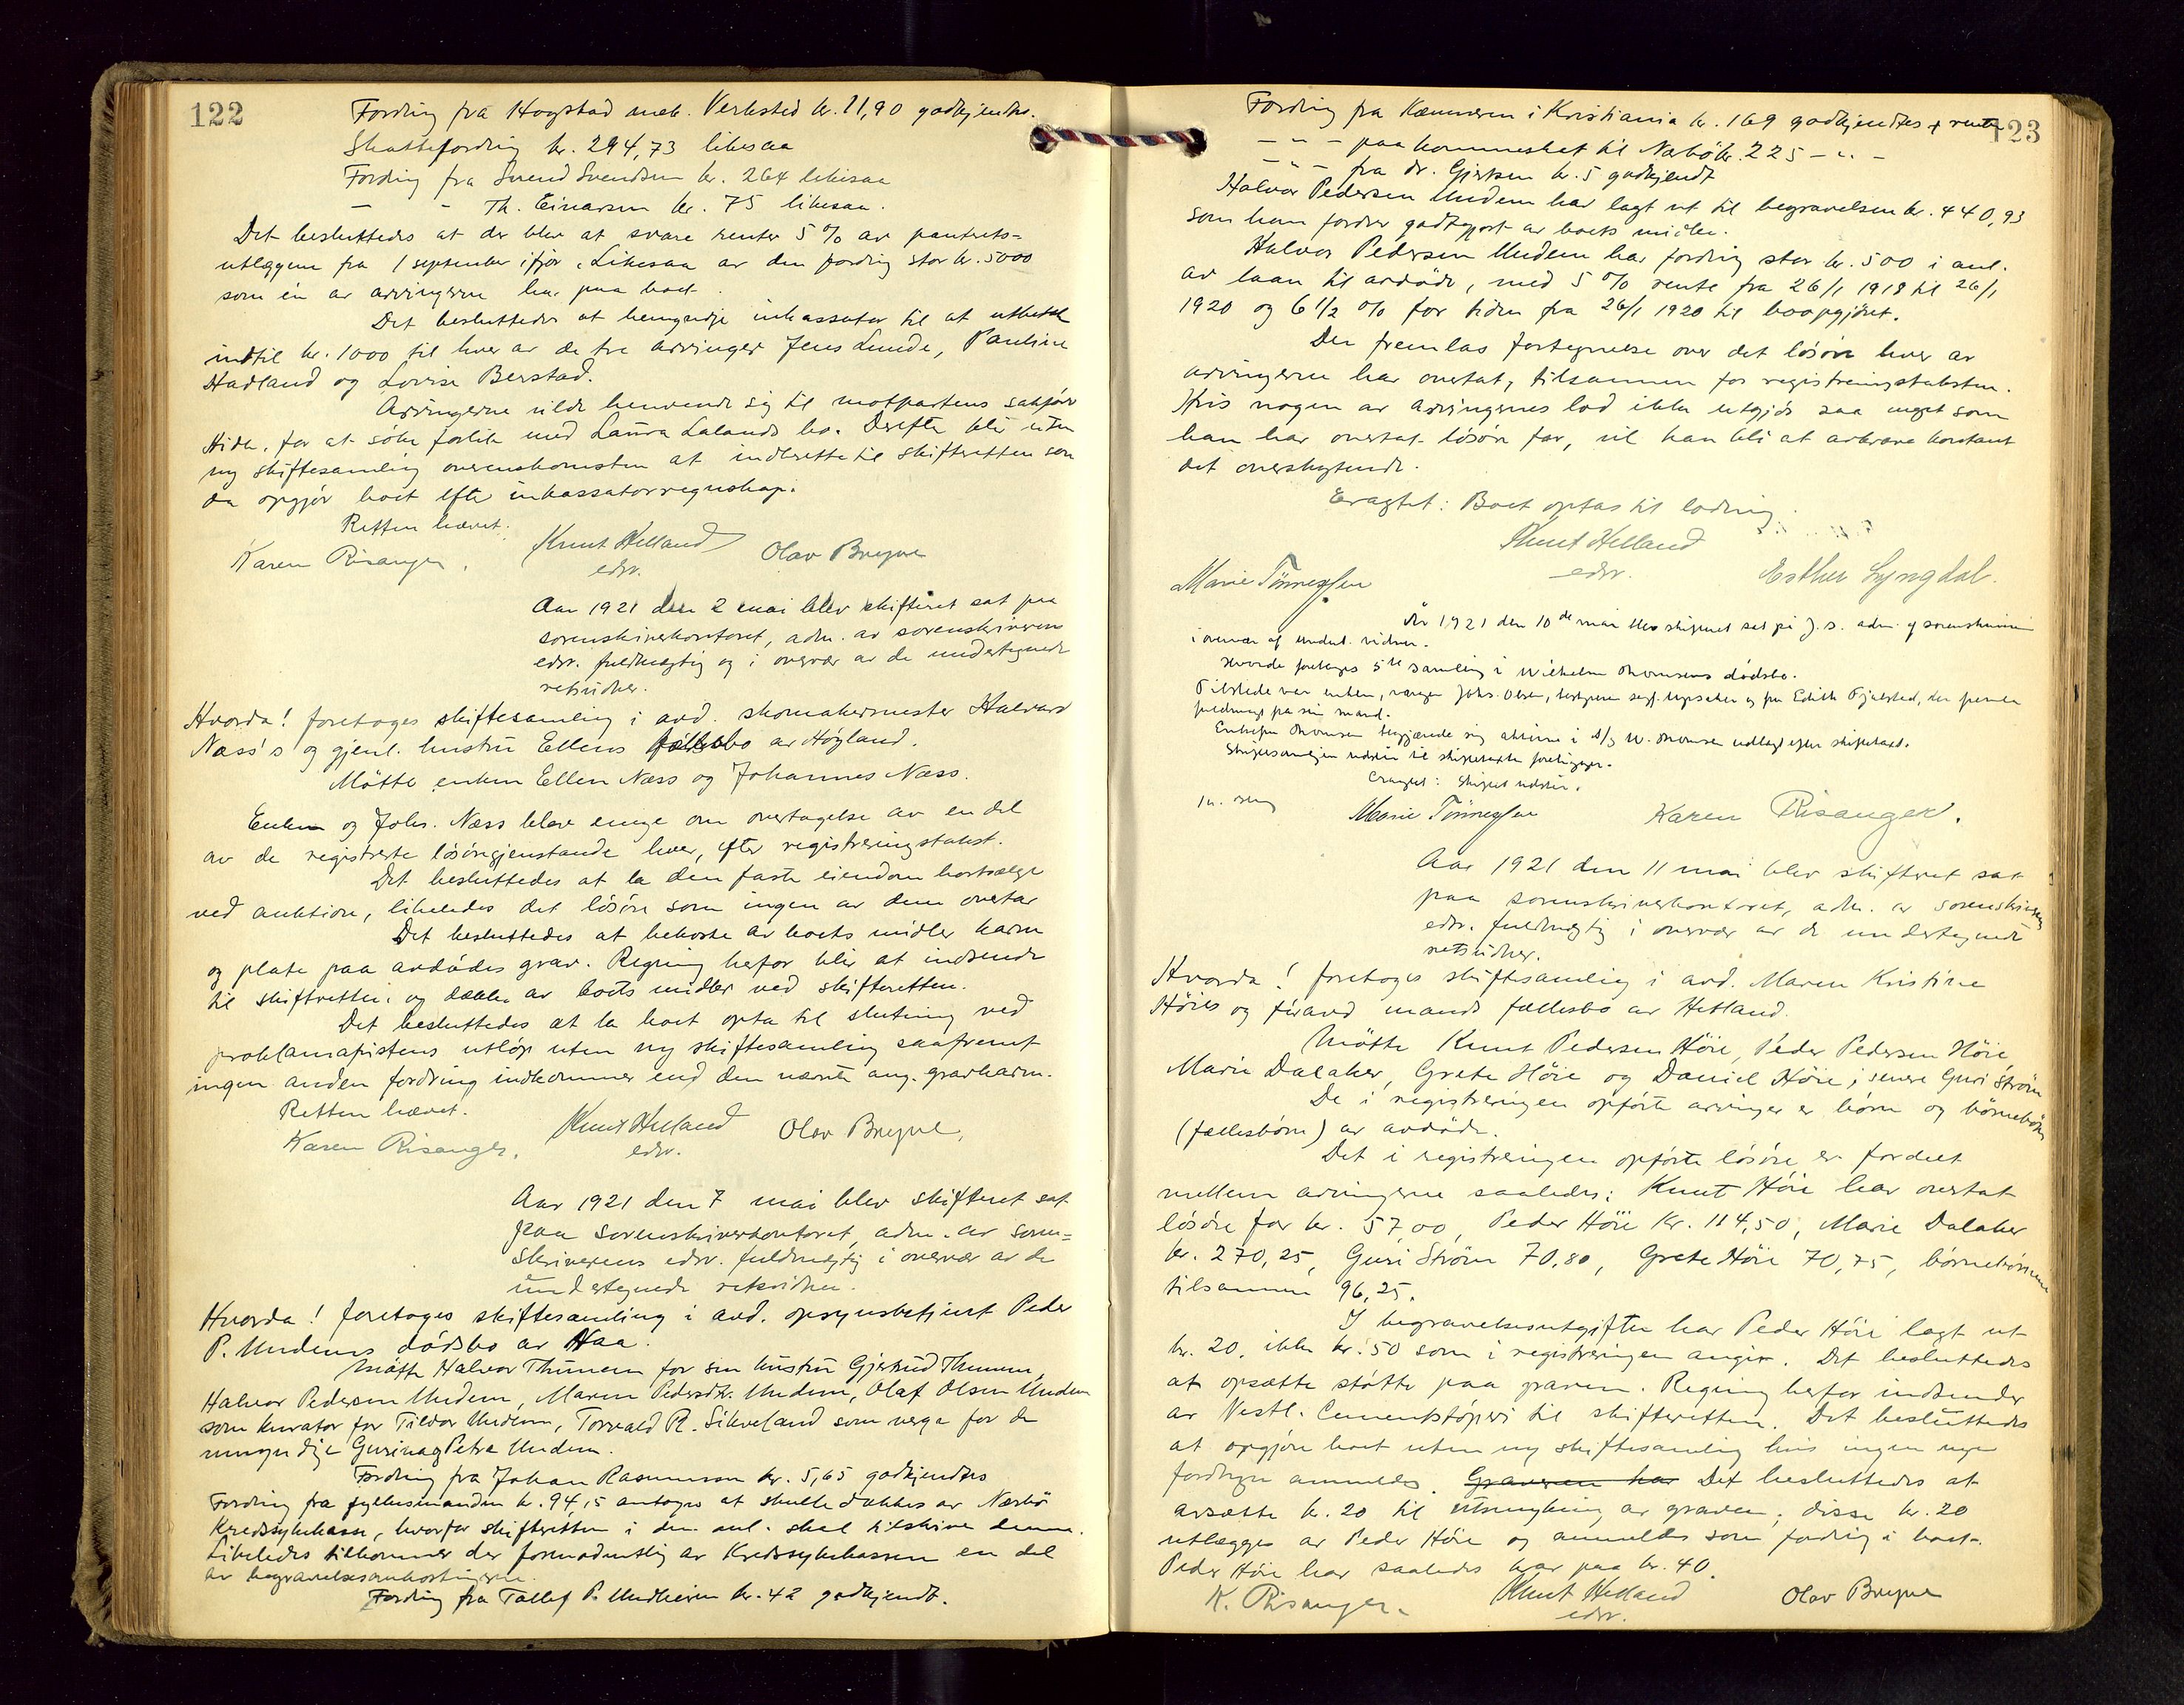 122
Fordring fra Hogstad mek. Verksted kr. 11,90 godkjendtes.
Skattefordring kr. 294,73 likesaa
Fordring fra Svend Svendsen kr. 264 likesaa
— - Th. Einarsen kr. 75 likesaa.
Det besluttedes at der blir at svare renter 5 % av pantrets-
utlæggene fra 1 september ifjor. Likesaa av den fordring stor kr. 5000
som én av arvingerne har paa boet.
Det besluttedes at bemyndige inkassator til at utbetale
indtil kr. 1000 til hver av de tre arvinger Jens Lunde, Pauline
Hadland og Lovise Berstad.
Arvingerne vilde henvende sig til motpartens sakfører
for at søke forlik med Laura Lalands bo. Derefter blir uten
ny skiftesamling overenskomsten at indberette til skifteretten som
da opgjør boet efter inkassatorregnskap.
Retten hævet.
Karen Risanger. Knut Helland Olav Bryne
edsv.
Aar 1921 den 2 mai blev skifteret sat paa
sorenskriverkontoret, adm. av sorenskriverens
edsv. fuldmægtig og i overvær av de undertegnede
retsvidner.
Hvorda! foretoges skiftesamling i avd. skomakermester Halvard
Næss's og gjenl. hustru Ellens fællesbo av Høyland.
Møtte enken Ellen Næss og Johannes Næss.
Enken og Johs. Næss blev enige om overtagelse av en del
av de registrerte løsøregjenstande hver, efter registreringstakst.
Det besluttedes at la den faste eiendom bortsælge
ved auktion, likeledes det løsøre som ingen av dem overtar
Det besluttedes at bekoste av boets midler karm
og plate paa avdødes grav. Regning herfor blir at indsende
til skifteretten og dækkes av boets midler ved skifteretten.
Det besluttedes at la boet opta til slutning ved
proklamafristens utløp uten ny skiftesamling saafremt
ingen anden fordring indkommer end den nævnte ang. gravkarm.
Retten hævet.
Karen Risanger. Knut Helland Olav Bryne,
edsv.
Aar 1921 den 7 mai blev skifteret sat
paa sorenskriverkontoret, adm. av soren-
skriverens edsv. fuldmægtig i overvær av de
undertegnede retsvidner.
Hvorda! foretoges skiftesamling i avd. opsynsbetjent Peder
P. Undems dødsbo av Haa.
Møtte Halvor Thunem for sin hustru Gjertrud Thunem,
Halvor Pedersen Undem, Maren Pedersdtr. Undem, Olaf Olsen Undem
som kurator for Tilda Undem, Torvald R. Sikveland som verge for de
umyndige Guri og Petra Undem.
Fordring fra Johan Rasmussen kr. 5,65 godkjendtes
Fordring fra fylkesmanden kr. 94,15 antoges at skulle dækkes av Nærbø
Kredssykekasse, hvorfor skifteretten i den anl. skal tilskrive denne.
Likeledes tilkommer der formodentlig av Kredssykekassen en del
av begravelsesomkostningerne.
Fordring fra Tollef P. Undheim kr. 42 godkjendt.
123
Fordring fra Kæmneren i Kristiania kr. 169 godkjendtes + renter
— " — paa kommuneskat til Nærbø kr. 225 — " —
— " — fra dr. Gjertsen kr. 5 godkjendt
Halvor Pedersen Undem har lagt ut til begravelsen kr. 440,93
som han fordrer godtgjort av boets midler.
Halvor Pedersen Undem har fordring stor kr. 500 i anl.
av laan til avdøde, med 5 % rente fra 26/1 1918 til 26/1
1920 og 6 1/2 % for tiden fra 26/1 1920 til boopgjøret.
Der fremlas fortegnelse over det løsøre hver av
arvingerne har overtat, tilsammen for registreringstaksten.
Hvis nogen av arvingernes lod ikke utgjør saa meget som
han har overtat løsøre for, vil han bli at avkræve kontant
det overskytende.
Eragtet: Boet optas til lodning.
Knut Helland
Marie Tönnessen edsv. Esther Lyngdal.
År 1921 den 10de mai blev skifteret sat på s. s. adm. af sorenskriveren
i overvær af undert. vidner.
Hvorda foretoges 5te samling i Wilhelm Thomsens dødsbo.
Tilstede var enken, verge Johs. Olsen, og fru Edith Fjelsted, der fremla
fuldmagt fra sin mand.
Enkefru Thomsen begjærede sig aktierne i A/S W. Thomsen udlagt efter skiftetakst.
Skiftesamlingen udstår til skiftetakst foreligger.
Eragtet: Skiftet udstår.
Marie Tönnessen Karen Risanger.
Aar 1921 den 11 mai blev skifteret sat
paa sorenskriverkontoret, adm. av sorenskriverens
edsv. fuldmægtig i overvær av de undertegnede
retsvidner.
Hvorda! foretoges skiftesamling i avd. Maren Kristine
Höies og föravd mands fællesbo av Hetland.
Møtte Knut Pedersen Höie, Peder Pedersen Höie,
Marie Dalaker, Grete Höie og Daniel Höie; senere Guri Ström
De i registreringen opförte arvinger er børn og børnebørn
(fællesbørn) av avdøde.
Det i registreringen opførte løsøre er fordelt
mellem arvingerne saaledes: Knut Höie har overtat
løsøre for kr. 57,00, Peder Höie kr. 114,50, Marie Dalaker
kr. 270,25, Guri Ström 70,80, Grete Höie 70,75, børnebørnene
tilsammen 96,25.
I begravelsesutgifter har Peder Höie lagt ut
kr. 20, ikke kr. 50 som i registreringen angit. Det besluttedes
at opsætte støtte paa graven. Regning herfor indsendes
av Vestl. Cementstøperi til skifteretten. Det besluttedes
at opgjøre boet uten ny skiftesamling hvis ingen nye
fordringer anmeldes. Graveren har Det besluttedes at
avsætte kr. 20 til utsmykning av graven; disse kr. 20
utlægges av Peder Höie og anmeldes som fordring i boet.
Peder Höie har saaledes krav paa kr. 40.
K. Risanger. Knut Helland Olav Bryne
edsv.